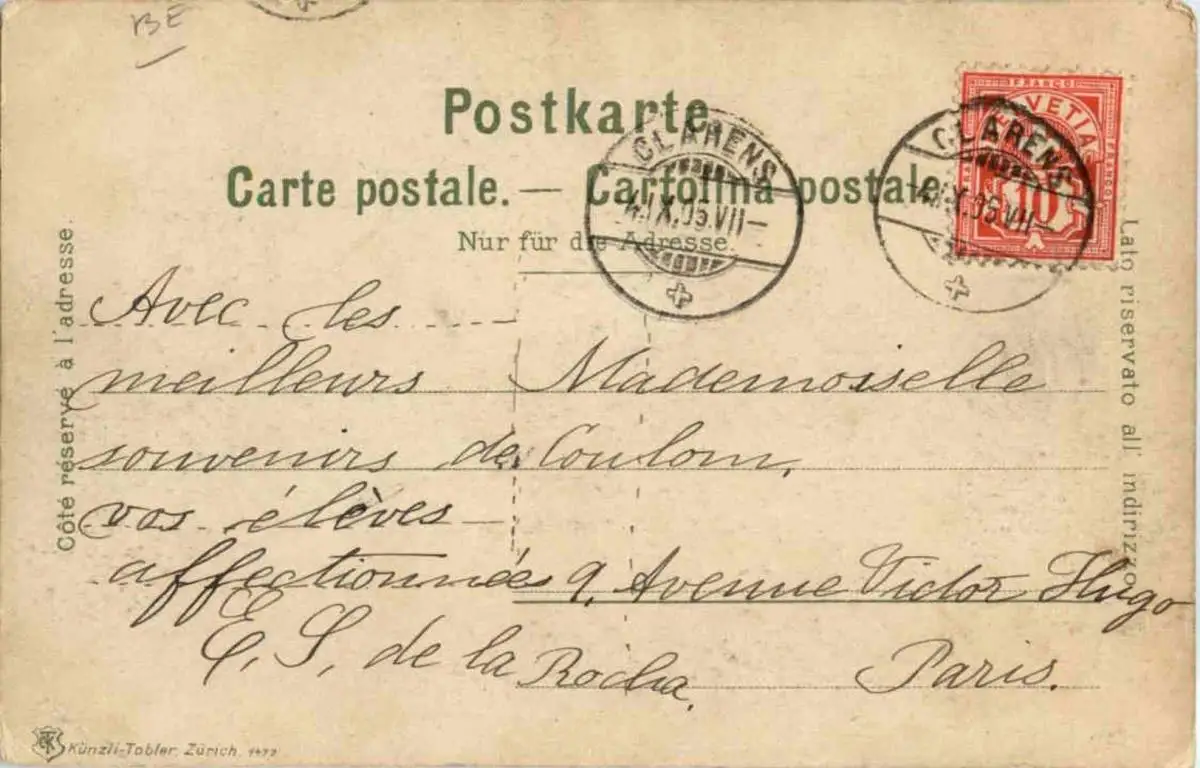 BE
Postkarte
Carte postale. — Cartolina postale.
Nur für die Adresse.
CLARENS
4.IX.05.VII—
CLARENS
4.IX.05.VII—
FRANCO
HELVETIA
10
Côté réservé à l'adresse.
Lato riservato all' indirizzo.
Avec les
meilleurs
souvenirs de
vos élèves
affectionnées
E. S. de la Rocha.
Mademoiselle
Coulom,
9, Avenue Victor Hugo
Paris.
Künzli-Tobler, Zürich.